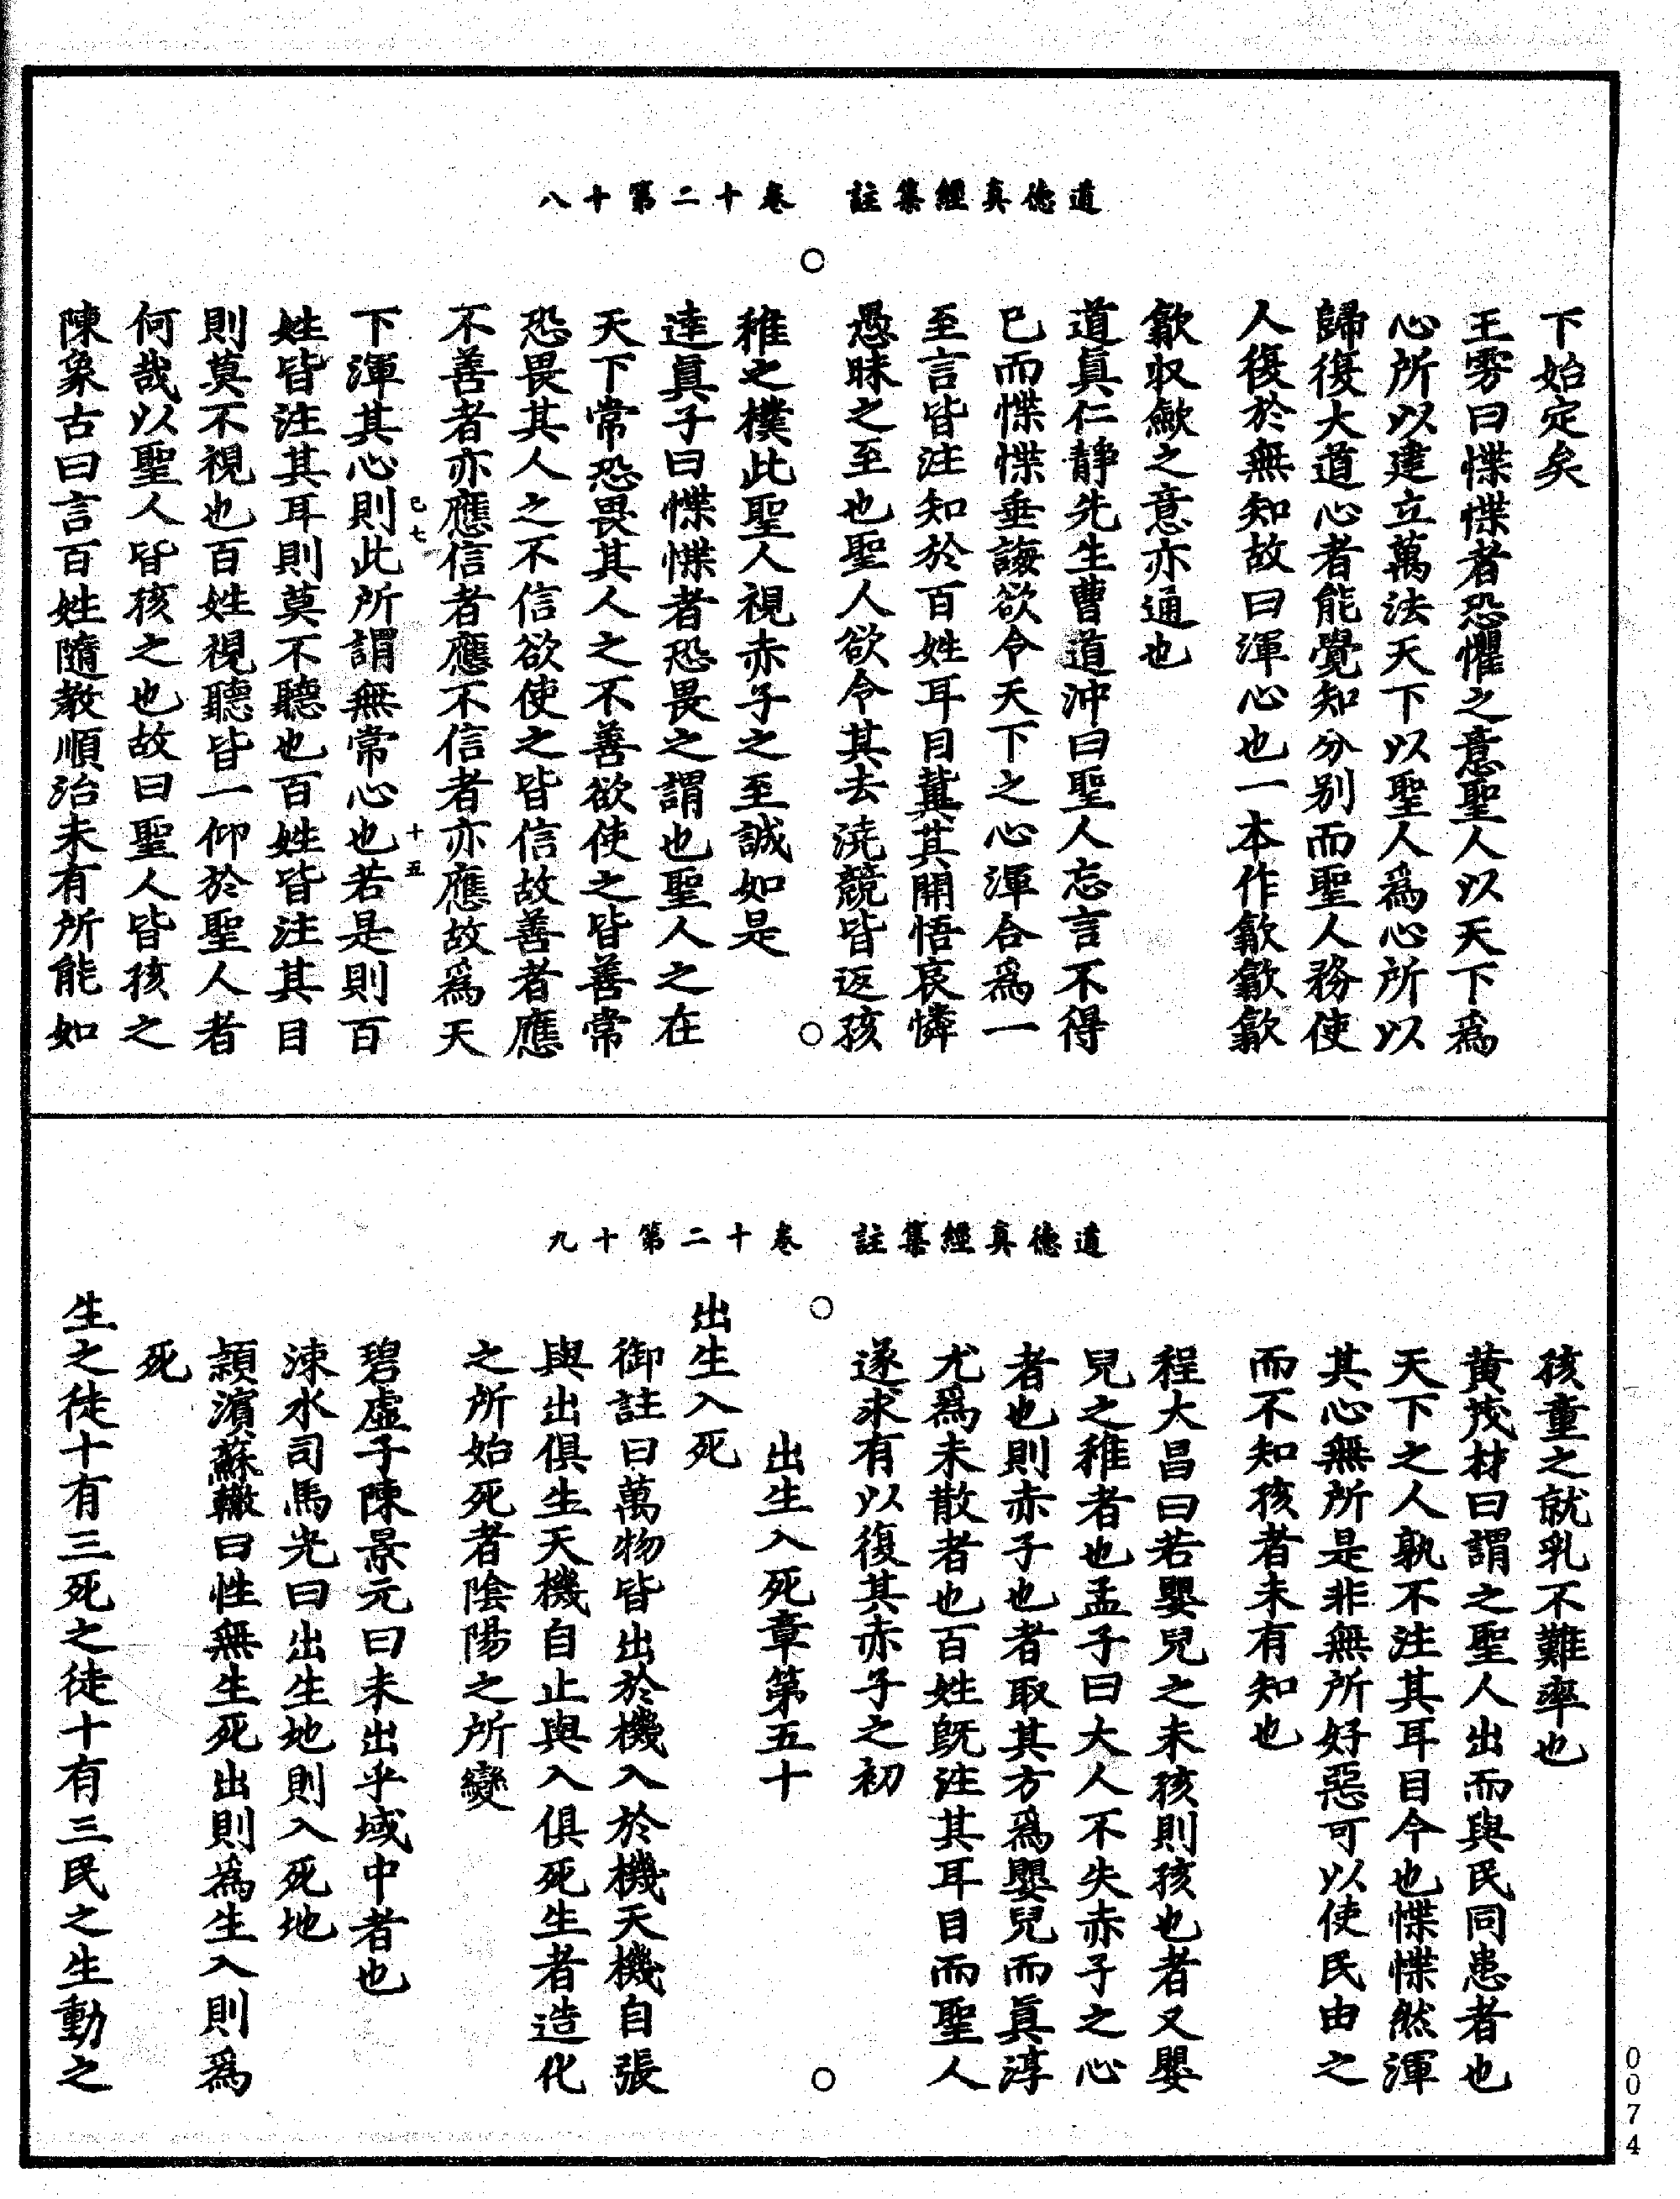 道德真經集註　卷十二第十八
下始定矣
王雱曰惵惵者恐懼之意聖人以天下爲
心所以建立萬法天下以聖人爲心所以
歸復大道心者能覺知分别而聖人務使
人復於無知故曰渾心也一本作歙歙歙
歙収歛之意亦通也
道真仁靜先生曹道沖曰聖人忘言不得
已而惵惵垂誨欲令天下之心渾合爲一
至言皆注知於百姓耳目冀其開悟哀憐
愚昧之至也聖人欲令其去澆競皆返孩
稚之樸此聖人視赤子之至誠如是
達真子曰惵惵者恐畏之謂也聖人之在
天下常恐畏其人之不善欲使之皆善常
恐畏其人之不信欲使之皆信故善者應
不善者亦應信者應不信者亦應故爲天
己七　十五
下渾其心則此所謂無常心也若是則百
姓皆注其耳則莫不聽也百姓皆注其目
則莫不視也百姓視聽皆一仰於聖人者
何哉以聖人皆孩之也故曰聖人皆孩之
陳象古曰言百姓隨教順治未有所能如
道德真經集註　卷十二第十九
孩童之就乳不難率也
黄茂材曰謂之聖人出而與民同患者也
天下之人孰不注其耳目今也惵惵然渾
其心無所是非無所好惡可以使民由之
而不知孩者未有知也
程大昌曰若嬰兒之未孩則孩也者又嬰
兒之稚者也孟子曰大人不失赤子之心
者也則赤子也者取其方爲嬰兒而真淳
尤爲未散者也百姓既注其耳目而聖人
遂求有以復其赤子之初
出生入死章第五十
出生入死
御註曰萬物皆出於機入於機天機自張
與出俱生天機自止與入俱死生者造化
之所始死者陰陽之所變
碧虛子陳景元曰未出乎域中者也
涑水司馬光曰出生地則入死地
頴濱蘇轍曰性無生死出則為生入則爲
死
生之徒十有三死之徒十有三民之生動之
0074